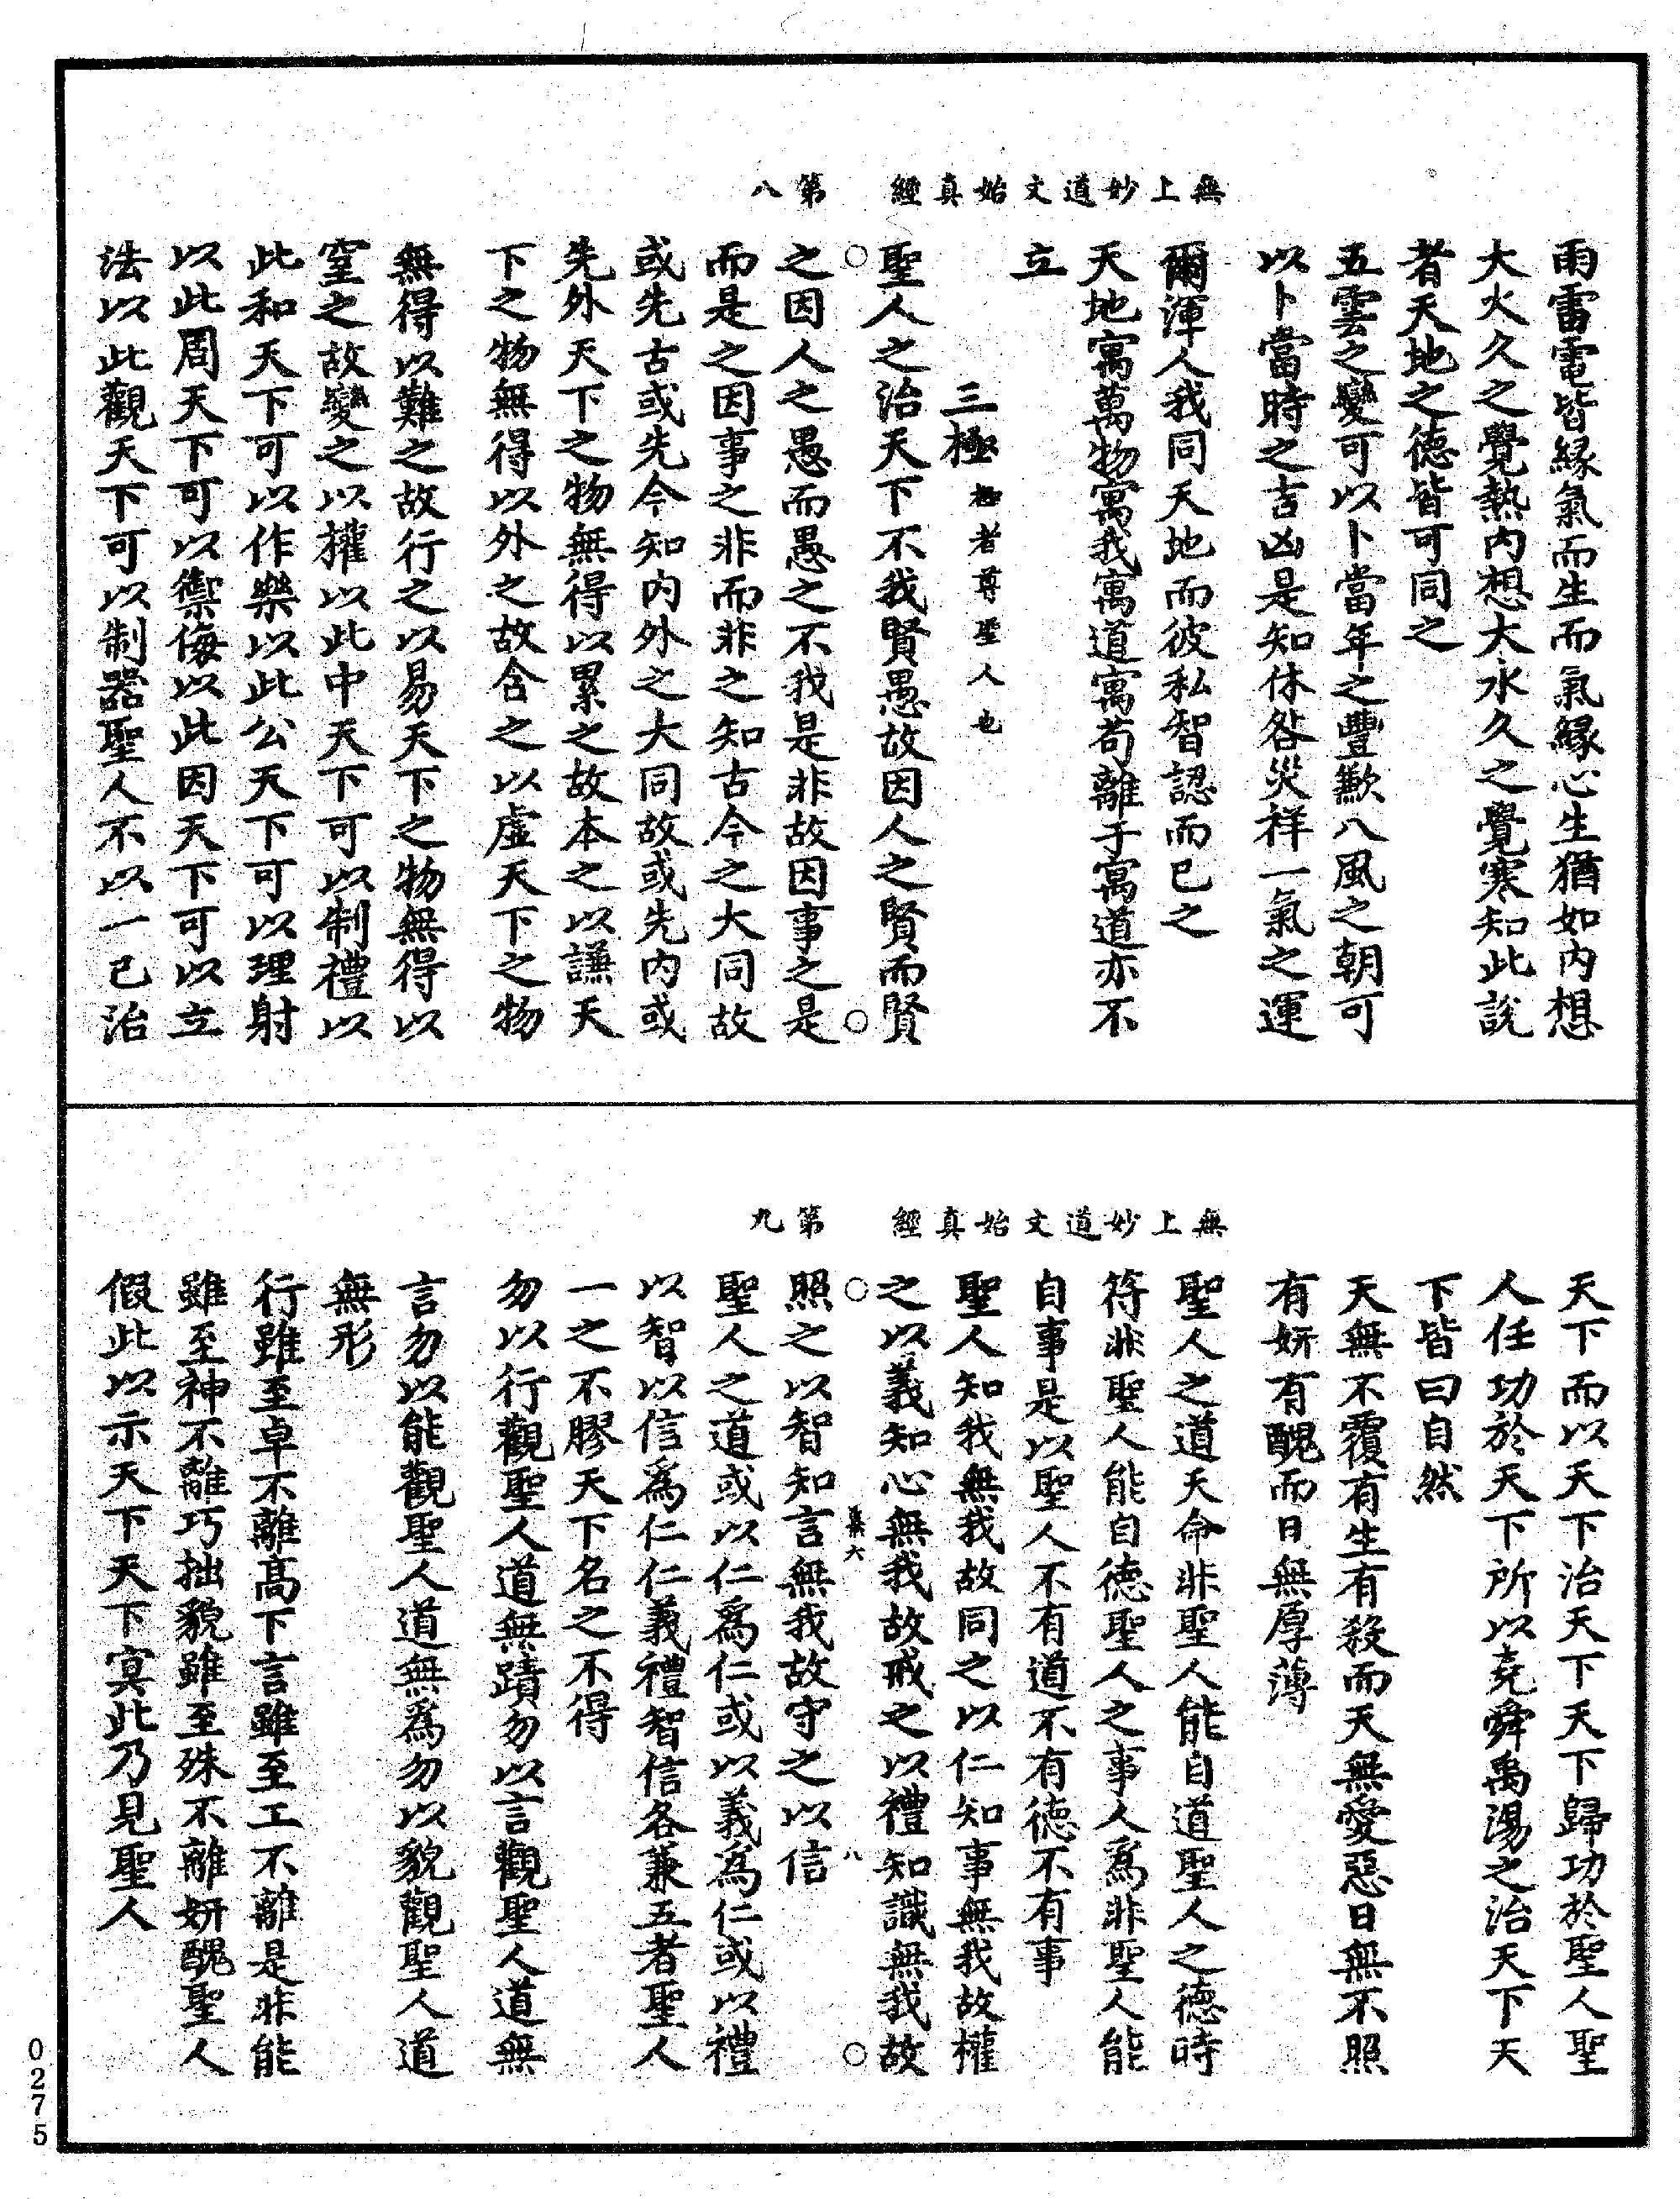 無上妙道文始真經 第八
雨雷電皆緣氣而生而氣緣心生猶如內想
大火久之覺熱內想大水久之覺寒知此說
者天地之德皆可同之
五雲之變可以卜當年之豐歉八風之朝可
以卜當時之吉凶是知休咎災祥一氣之運
爾渾人我同天地而彼私智認而已之
天地寓萬物寓我寓道寓苟離于寓道亦不
立
三極極者尊聖人也
聖人之治天下不我賢愚故因人之賢而賢
之因人之愚而愚之不我是非故因事之是
而是之因事之非而非之知古今之大同故
或先古或先今知內外之大同故或先內或
先外天下之物無得以累之故本之以謙天
下之物無得以外之故含之以虛天下之物
無得以難之故行之以易天下之物無得以
窒之故變之以權以此中天下可以制禮以
此和天下可以作樂以此公天下可以理射
以此周天下可以禦侮以此因天下可以立
法以此觀天下可以制器聖人不以一己治
無上妙道文始真經 第九
天下而以天下治天下天下歸功於聖人聖
人任功於天下所以堯舜禹湯之治天下天
下皆曰自然
天無不覆有生有殺而天無愛惡日無不照
有妍有醜而日無厚薄
聖人之道天命非聖人能自道聖人之德時
符非聖人能自德聖人之事人爲非聖人能
自事是以聖人不有道不有德不有事
聖人知我無我故同之以仁知事無我故權
之以義知心無我故戒之以禮知識無我故
照之以智知言無我故守之以信
聖人之道或以仁爲仁或以義爲仁或以禮
以智以信爲仁仁義禮智信各兼五者聖人
一之不膠天下名之不得
勿以行觀聖人道無蹟勿以言觀聖人道無
言勿以能觀聖人道無爲勿以貌觀聖人道
無形
行雖至卓不離高下言雖至工不離是非能
雖至神不離巧拙貌雖至殊不離妍醜聖人
假此以示天下天下冥此乃見聖人
0275